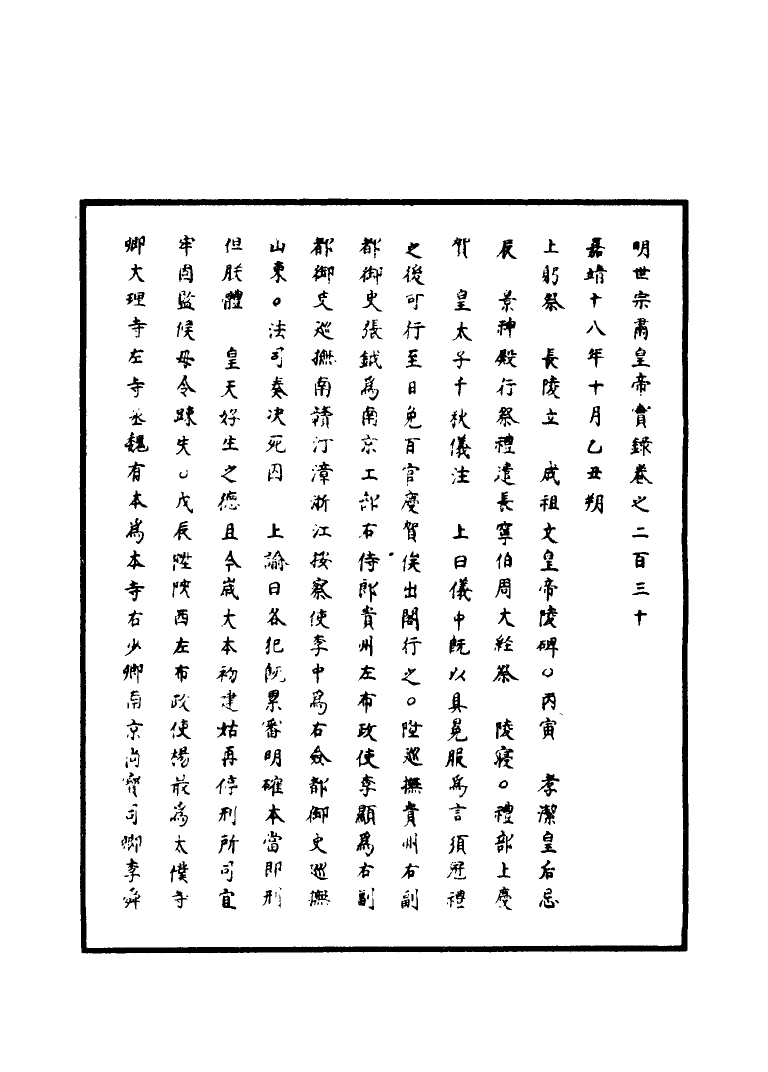 明世宗肅皇帝實錄卷之二百三十
嘉靖十八年十月乙丑朔
上躬祭　長陵立　成祖文皇帝陵碑○丙寅　孝潔皇后忌
辰　景神殿行祭禮遣長寧伯周大經祭　陵寢○禮部上慶
賀　皇太子千秋儀注　上曰儀中既以具冕服為言須冠禮
之後可行至日免百官慶賀俟出閣行之○陞巡撫貴州右副
都御史張鉞為南京工部右侍郎貴州左布政使李顯為右副
都御史巡撫南贛汀漳浙江按察使李中為右僉都御史巡撫
山東○法司奏決死囚　上諭曰各犯既累審明確本當即刑
但朕體　皇天好生之德且今歲大本初建姑再停刑所司宜
牢固監候毋令踈失○戊辰陞陝西左布政使楊最為太僕寺
卿大理寺左寺丞魏有本為本寺右少卿南京尚寶司卿李舜